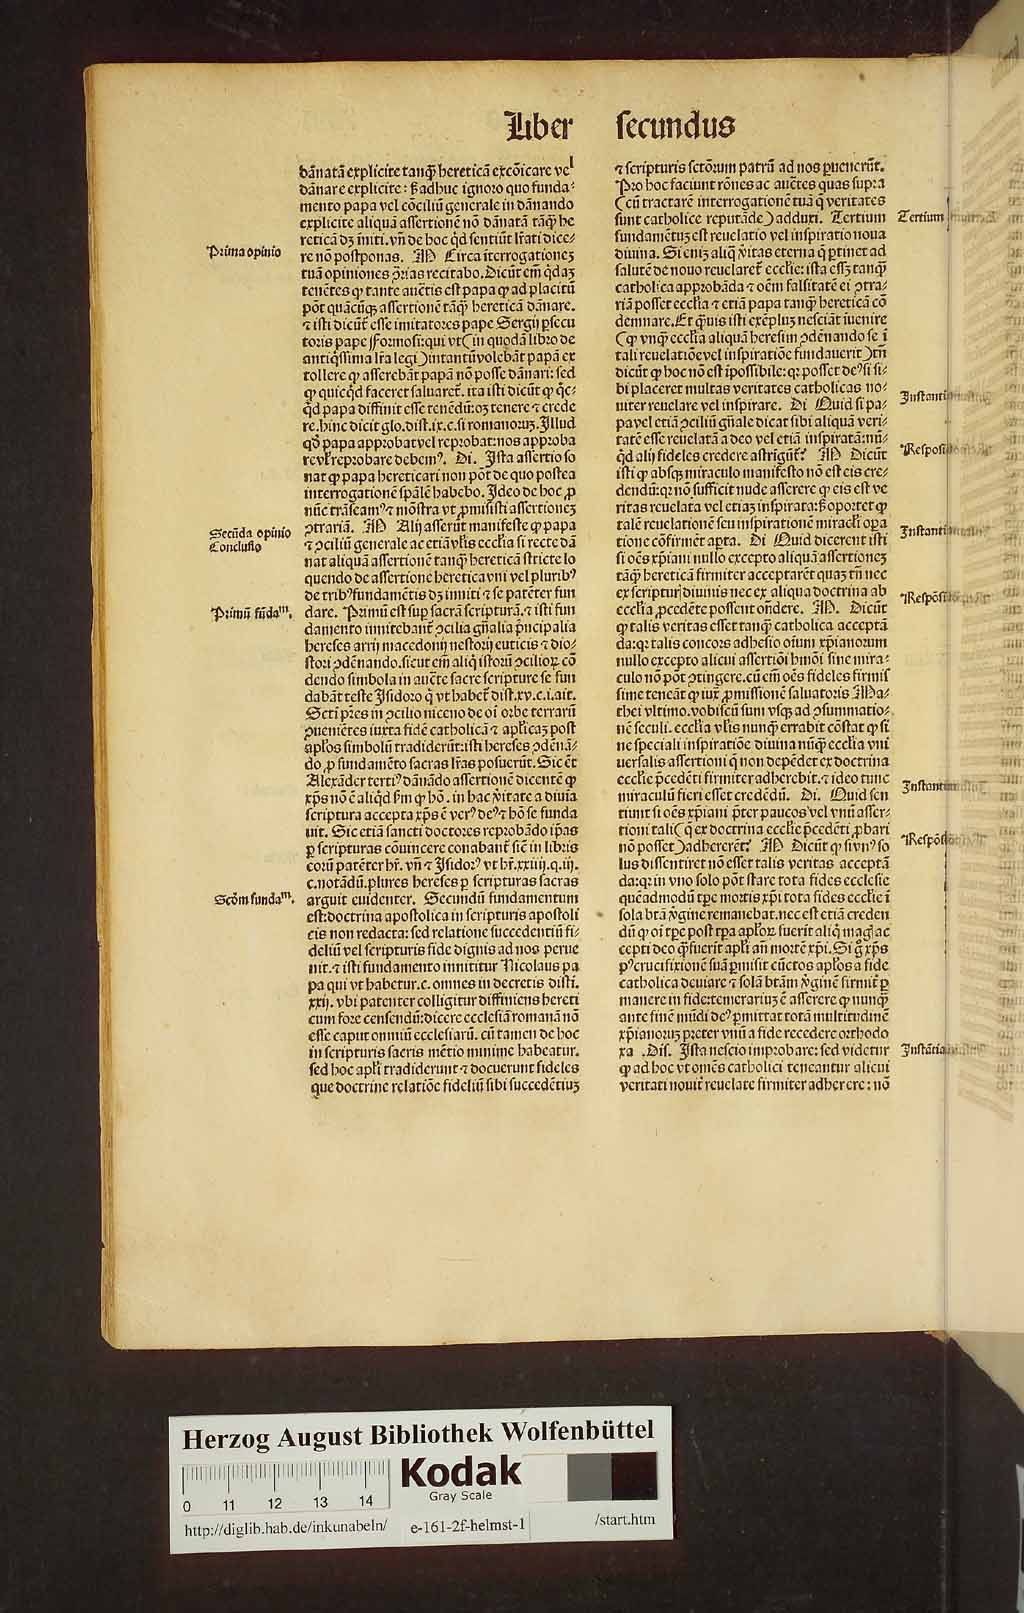 Liber secundus
dānatā explicite tanq̄ hereticā excōicare vel
dānare explicite: s̄ adhuc ignoro quo funda⸗
mento papa vel cōciliū generale in dānando
explicite aliquā assertionē nō dānatā tāq̄ he
reticā dꝫ initi. vñ de hoc qͥd sentiūt lr̄ati dice⸗
re nō postponas. M Circa īterrogationeꝫ
tuā opiniones ꝯr̄ias recitabo. Dicūt em̄ qͥdaꝫ
tenētes ꝙ tante auc̄tis est papa ꝙ ad placitū
pōt quācūqꝫ assertionē tāq̄ hereticā dānare.
⁊ isti dicūt̄ esse imitatores pape Sergij ꝑsecu
toris pape Formosi: qui vt (in quodā libro de
antiqͥssima lr̄a legi) intantū volebāt papā ex
tollere ꝙ asserebāt papā nō posse dānari: sed
ꝙ quicqͥd faceret saluaret̄. ita isti dicūt ꝙ qͥc⸗
qͥd papa diffinit esse tenēdū: oꝫ tenere ⁊ crede
re. hinc dicit glo. dist. ix. c. si romanoruꝫ. Illud
qd̄ papa approbat vel reprobat: nos approba
re vl̓ reprobare debemꝰ. Di. Ista assertio so
nat ꝙ papa hereticari non pōt de quo postea
interrogationē spālē habebo. Ideo de hoc ꝓ
nūc trāseamꝰ ⁊ mōstra vt ꝓmisisti assertioneꝫ
ꝯtrariā. M Alij asserūt manifeste ꝙ papa
⁊ ꝯciliū generale ac etiā vl̓is eccl̓ia si recte dā
nat aliquā assertionē tanq̄ hereticā stricte lo
quendo de assertione heretica vni vel pluribꝰ
de tribꝰ fundamētis dꝫ inniti ⁊ se patēter fun
dare. Primū est sup̄ sacrā scripturā. ⁊ isti fun
damento innitebant̄ ꝯcilia gn̄alia p̄ncipalia
hereses arrij macedonij nestorij euticis ⁊ dio⸗
scori ꝯdēnando. sicut em̄ aliqͥ istorū ꝯcilioꝝ cō
dendo simbola in auc̄te sacre scripture se fun
dabāt teste Isidoro qͥ vt habet̄ dist. xv. c. i. ait.
Scti p̄res in ꝯcilio niceno de oī orbe terrarū
ꝯuenientes iuxta fidē catholicā ⁊ apl̓icaꝫ post
apl̓os simbolū tradiderūt: isti hereses ꝯdēnā⸗
do, ꝓ fundamēto sacras lr̄as posuerūt. Sic ēt
Alexāder tertiꝰ dānādo assertionē dicentē ꝙ
xp̄s nō ē aliqͥd sm̄ ꝙ hō. in hac v̓itate a diuīa
scriptura accepta xp̄s ē verꝰ deꝰ ⁊ hō se funda
uit. Sic etiā sancti doctores reprobādo īp̄as
ꝑ scripturas cōuincere conabant̄ sic̄ in libris
eorū patēter hr̄. vñ ⁊ Isidorꝰ vt hr̄. xxiiij. q. iij.
c. notādū. plures hereses ꝑ scripturas sacras
arguit euidenter. Secundū fundamentum
est: doctrina apostolica in scripturis apostoli
cis non redacta: sed relatione succedentiū fi⸗
deliū vel scripturis fide dignis ad nos perue
nit. ⁊ isti fundamento innititur Nicolaus pa
pa qui vt habetur. c. omnes in decretis dist.
xxij. vbi patenter colligitur diffiniens hereti
cum fore censendū: dicere ecclesiā romanā nō
esse caput omniū ecclesiarū. cū tamen de hoc
in scripturis sacris mētio minime habeatur.
sed hoc apl̓i tradiderunt ⁊ docuerunt fideles
que doctrine relatiōe fideliū sibi succedētiuꝫ
⁊ scripturis sctōrum patrū ad nos ꝑuenerūt.
Pro hoc faciunt rōnes ac auc̄tes quas supra
(cū tractarē interrogationē tuā q̄ veritates
sunt catholice reputāde) adduxi. Tertium
fundamētuꝫ est reuelatio vel inspiratio noua
diuina. Si eniꝫ aliq̄ v̓itas eterna q̄ ꝑtinet ad
salutē de nouo reuelaret̄ eccl̓ie: ista esꝫ tanq̄
catholica approbāda ⁊ oēm falsitatē ei ꝯtra⸗
riā posset eccl̓ia ⁊ etiā papa tanq̄ hereticā cō
demnare. Et q̄uis isti exēpluꝫ nesciāt īuenire
(ꝙ vnq̄ eccl̓ia aliquā heresim ꝯdēnando se ī
tali reuelatiōe vel inspiratiōe fundauerit) tn̄
dicūt ꝙ hoc nō est īpossibile: qꝛ posset deꝰ si si⸗
bi placeret multas veritates catholicas no⸗
uiter reuelare vel inspirare. Di Quid si pa⸗
pa vel etiā ꝯciliū gn̄ale dicat sibi aliquā veri⸗
tatē esse reuelatā a deo vel etiā inspiratā: nū⸗
qͥd alij fideles credere astrigūt̄? M Dicūt
isti ꝙ absqꝫ miraculo manifesto nō est eis cre⸗
dendū: qꝛ nō sufficit nude asserere ꝙ eis est ve
ritas reuelata vel etiaꝫ inspirata: s̄ oportet ꝙ
talē reuelationē seu inspirationē miracl̓i oꝑa
tione cōfirmēt aꝑta. Di Quid dicerent isti
si oēs xp̄iani nullo excepto aliquā assertioneꝫ
tāq̄ hereticā firmiter acceptarēt quaꝫ tn̄ nec
ex scripturis diuinis nec ex aliqua doctrina ab
eccl̓ia ꝓcedēte possent on̄dere. M. Dicūt
ꝙ talis veritas esset tanq̄ catholica acceptā
da: qꝛ talis concors adhesio oīum xp̄ianorum
nullo excepto alicui assertiōi hmōi sine mira⸗
culo nō pōt ꝯtingere. cū em̄ oēs fideles firmis
sime teneāt ꝙ iuxͣ ꝓmissionē saluatoris Ma⸗
thei vltimo. vobiscū sum vsqꝫ ad ꝯsummatio⸗
nē seculi. eccl̓ia vl̓is nunq̄ errabit cōstat ꝙ si
ne speciali inspiratiōe diuina nūq̄ eccl̓ia vni
uersalis assertioni q̄ non depēdet ex doctrina
eccl̓ie p̄cedēti firmiter adherebit. ⁊ ideo tunc
miraculū fieri esset credēdū. Di. Quid sen
tiunt si oēs xp̄iani p̄ter paucos vel vnū asser⸗
tioni tali (q̄ ex doctrina eccl̓ie p̄cedēti ꝓbari
nō posset) adhererēt? M Dicūt ꝙ si vnꝰ so
lus dissentiret nō esset talis veritas acceptā
da: qꝛ in vno solo pōt stare tota fides ecclesie
quēadmodū tꝑe mortis xp̄i tota fides eccl̓ie ī
sola btā v̓gine remanebat. nec est etiā creden
dū ꝙ oī tꝑe post tꝑa apl̓oꝝ fuerit aliqͥ magͥ ac
cepti deo q̄ fuerit apl̓i añ mortē xp̄i. Si g̊ xp̄s
pꝰ crucifixionē suā ꝑmisit cūctos apl̓os a fide
catholica deuiare ⁊ solā btām v̓ginē firmit̄ ꝑ
manere in fide: temerariuꝫ ē asserere ꝙ nunq̄
ante finē mūdi deꝰ ꝑmittat totā multitudinē
xp̄ianoruꝫ preter vnū a fide recedere orthodo
xa. Dis. Ista nescio improbare: sed videtur
ꝙ ad hoc vt omēs catholici teneantur alicui
veritati nouit̄ reuelate firmiter adherere: nō
Prima opinio
Secūda opinio
Conclusio
Primū fūdaᵐ.
Scd̄m fundaᵐ.
Tertium
Instanti
Resposi
Instanti
Respōsi
Instanti
Respōsi
Instātia
Herzog August Bibliothek Wolfenbüttel
Kodak
Gray Scale
0 11 12 13 14
http://diglib.hab.de/inkunabeln/ e-161-2f-helmst-1 /start.htm